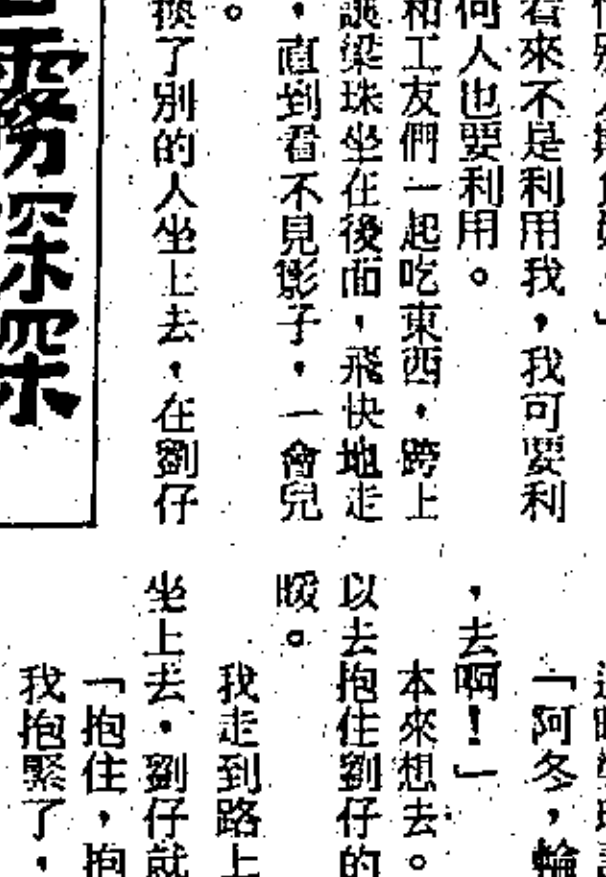 看來不是利用我，我可要利
何人也要利用。
和工友們一起吃東西，跨上
讓梁珠坐在後面，飛快地走
，直到看不見影子，一會兒
。
換了別的人坐上去，在劉仔
霧深深
「阿冬，輪
，去啊！」
本來想去。
以去抱住劉仔的
暖。
我走到路上
坐上去，劉仔就
「抱住，抱
我抱緊了，